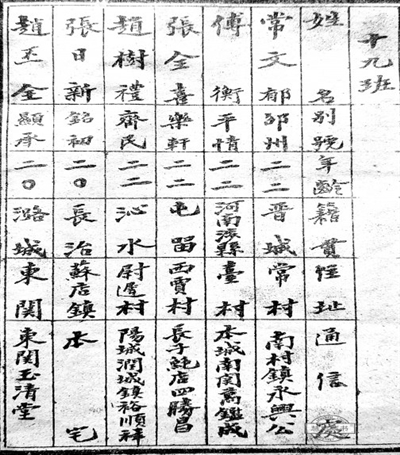 十九班
姓名 別號 年齡 籍貫 住址 通信處
常文郁 郇州 二二 晉城 常村 南村鎮永興公
傅衡 平情 二二 河南涉縣 臺村 本城南関萬鎰成
張全喜 樂軒 二二 屯留 西賈村 長子鮑店四勝昌
趙樹禮 齊民 二二 沁水 尉遲村 陽城潤城鎮裕順祥
張日新 銘初 二〇 長治 蘇店鎮 本宅
趙玉全 顯承 二〇 潞城 東関 東関玉清堂